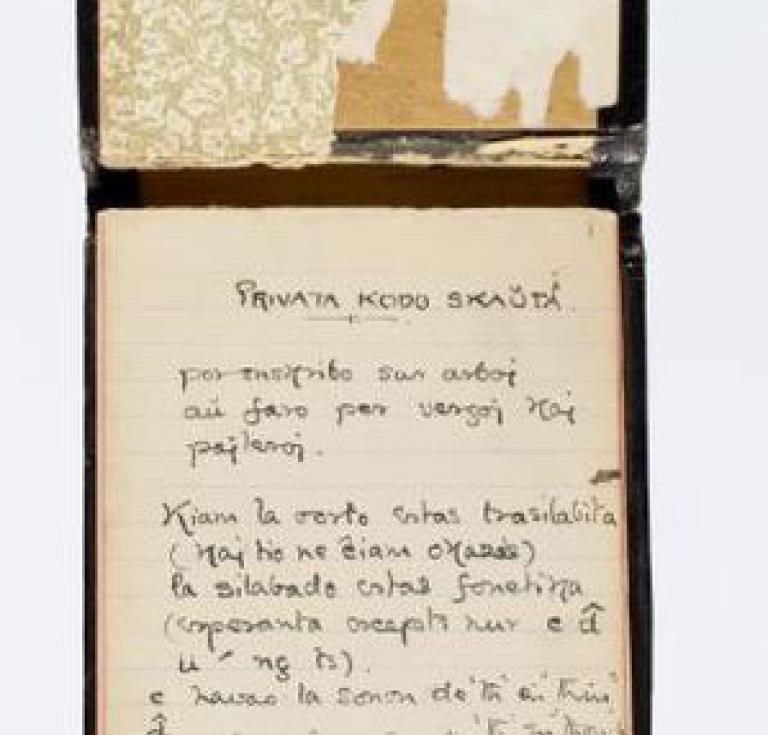 PRIVATA KODO SKAŬTA.
por enskribo sur arboj
aŭ faro per vergoj kaj
pajleroj.
Kiam la vorto estas trasilabita
(kaj tio ne ĉiam okazas)
la silabado estas fonetika
(esperanta escepti nur c d̂
u ng ts).
c havas la sonon de 'th' en 'thin'
d̂